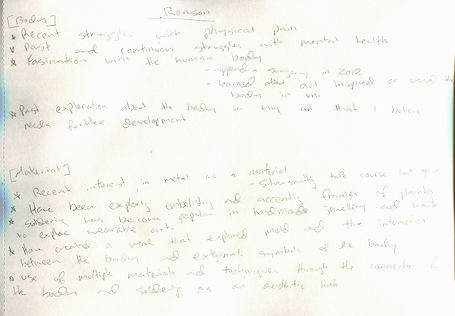 Reason
[Body]
* Recent struggles with physical pain
* Past and continuous struggles with mental health
* Fasination with the human body
- appendix surgery in 2012
- learned about art inspired or used the
body in uni
* Past exploration about the body in my art that I believe
needs further development
[Material]
* Recent interest in metal as a material
- Silversmithy tafe course last year
* Have been exploring embelishing and accenting frames of
* soldering has become popular in handmade jewellery and want
to explore wearable art.
* Have created a work that explored mold and the interaction
between the body and external symbols of the body
* use of multiple materials and techniques through the connection of
the body and soldering as an aesthetic link